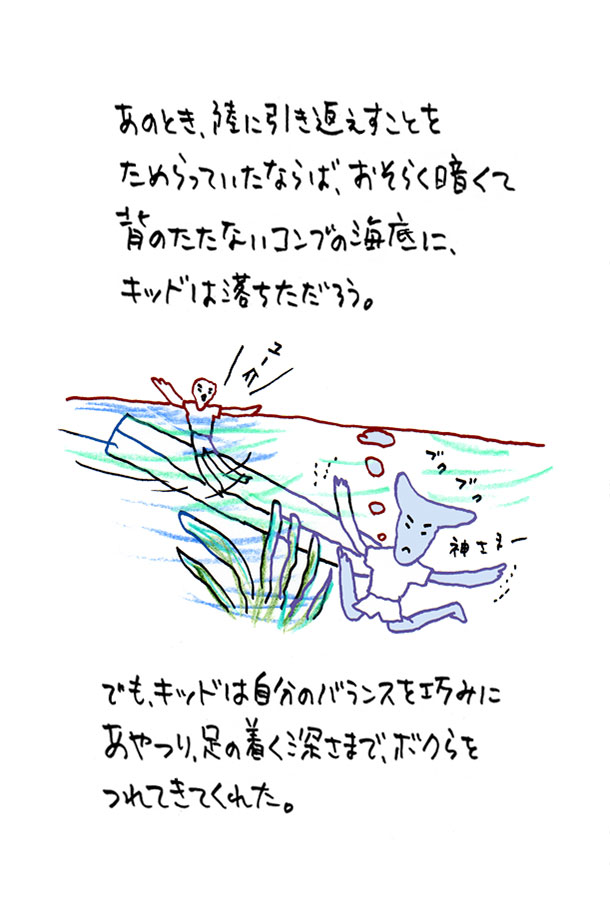 あのとき、陸に引き返えすことを
ためらっていたならば、おそらく暗くて
背のたたないコンブの海底に、
キッドは落ちただろう。
ブクブク
神さまー
でも、キッドは自分のバランスを巧みに
あやつり、足の着く深さまで、ボクらを
つれてきてくれた。